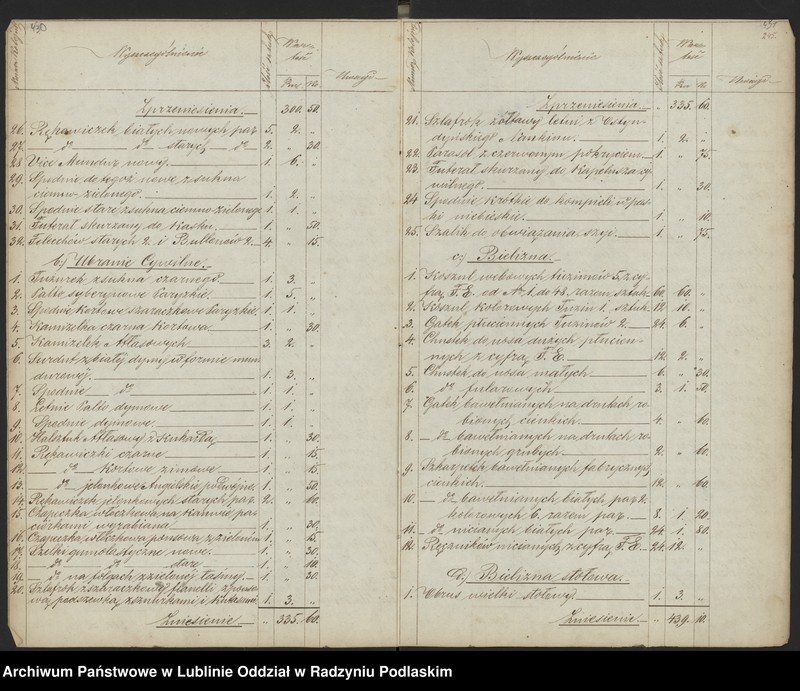 430
Wyszczególnienie
Ilość sztuk
Wartość
Rsr. k.
Uwagi
Zprzeniesienia. 300. 50.
26. Rękawiczek białych nowych par 5. 2. „
27. — dº — dº starych — dº 2. „ 30.
28. Vice Mundur nowy. 1. 6. „
29. Spodnie do tegoż nowe z sukna
ciemno zielonego. 1. 2. „
30. Spodnie stare z sukna ciemno-zielonego 1. 1. „
31. Futerał skurzany do Kasku. 1. „ 50.
32. Felcechów starych 2. i Bullonów 2. 4. „ 15.
b.) Ubranie Cywilne.
1. Tużurek z sukna czarnego. 1. 3. „
2. Palto syberynowe Paryzkie. 1. 5. „
3. Spodnie Kortowe szaraczkowe Paryzkie. 1. 1. „
4. Kamizelka czarna Kortowa. 1. „ 30.
5. Kamizelek Atłasowych 3. 2. „
6. Surdut z białej dymy w formie mun
durowej. 1. 3. „
7. Spodnie dº 1. 1. „
8. Letnie Palto dymowe 1. 1. „
9. Spodnie dymowe. 1. 1. „
10. Halsztuk Atłasowy z Kokardą 1. „ 30.
11. Rękawiczki czarne 1. „ 15.
12. — dº — Kortowe zimowe 1. „ 15.
13. — dº — jelonkowe Angielskie podwójne 1. „ 50.
14. Rękawiczek jelonkowych starych par. 2. „ 60.
15. Czapeczka włóczkowa na Kanwie pa-
ciórkami wyrabiana 1. „ 30.
16. Czapeczka włóczkowa ponsowa z zielonem 1. „ 15.
17. Szelki gumelastyczne nowe. 1. „ 30.
18. — dº dº — stare 1. „ 10.
19. — dº na folgach z zielonej tasimy. 1. „ 30.
20. Szlafrok z szaraczkowej flanelli z ponso-
wą podszewką z sznurkami i Kutasami. 1. 3. „
Zniesienie „ 335. 60.
431
Wyszczególnienie
Ilość sztuk
Wartość
Rsr. k.
Uwagi
Zprzeniesienia „ 335. 60.
21. Szlafrok żółtawy letni z Ostyn-
dyńskiego Nankinu. 1. 2. „
22. Parasol z czerwonym pokryciem. 1. „ 75.
23. Futerał skurzany do Kapelusza cy
wilnego. 1. „ 30.
24. Spodnie krótkie do kompieli w pas-
ki niebieskie. 1. „ 10.
25. Szalik do obwiązania szyi. 1. „ 75.
c.) Bielizna.
1. Koszul webowych tuzinów 5, z cy-
frą F. E. od Nr. 1. do 48. razem sztuk 60. 60. „
2. Koszul kolorowych Tuzin 1. sztuk. 12. 10. „
3. Gatek płóciennych Tuzinów 2. 24. 6. „
4. Chustek do nosa dużych płócien-
nych z cyfrą F. E. 12. 2. „
5. Chustek do nosa małych 6. „ 30.
6. dº fularowych 3. 1. 50.
7. Gatek bawełnianych na drutach ro-
bionych cienkich. 4. „ 60.
8. — dº bawełnianych na drutach ro-
bionych grubych. 2. „ 60.
9. Szkarpetek bawełnianych fabrycznych
cienkich. 12. „ 60.
10. — dº — bawełnianych białych par 2.
kolorowych 6. razem par. 8. 1. 20.
11. — dº — nicianych białych par 24. 1. 80.
12. Ręczników nicianych z cyfrą F. E. 24. 12. „
d.) Bielizna stołowa.
1. Obrus wielki stołowy. 1. 3. „
Zniesienie. „ 439. 10.
Archiwum Państwowe w Lublinie Oddział w Radzyniu Podlaskim